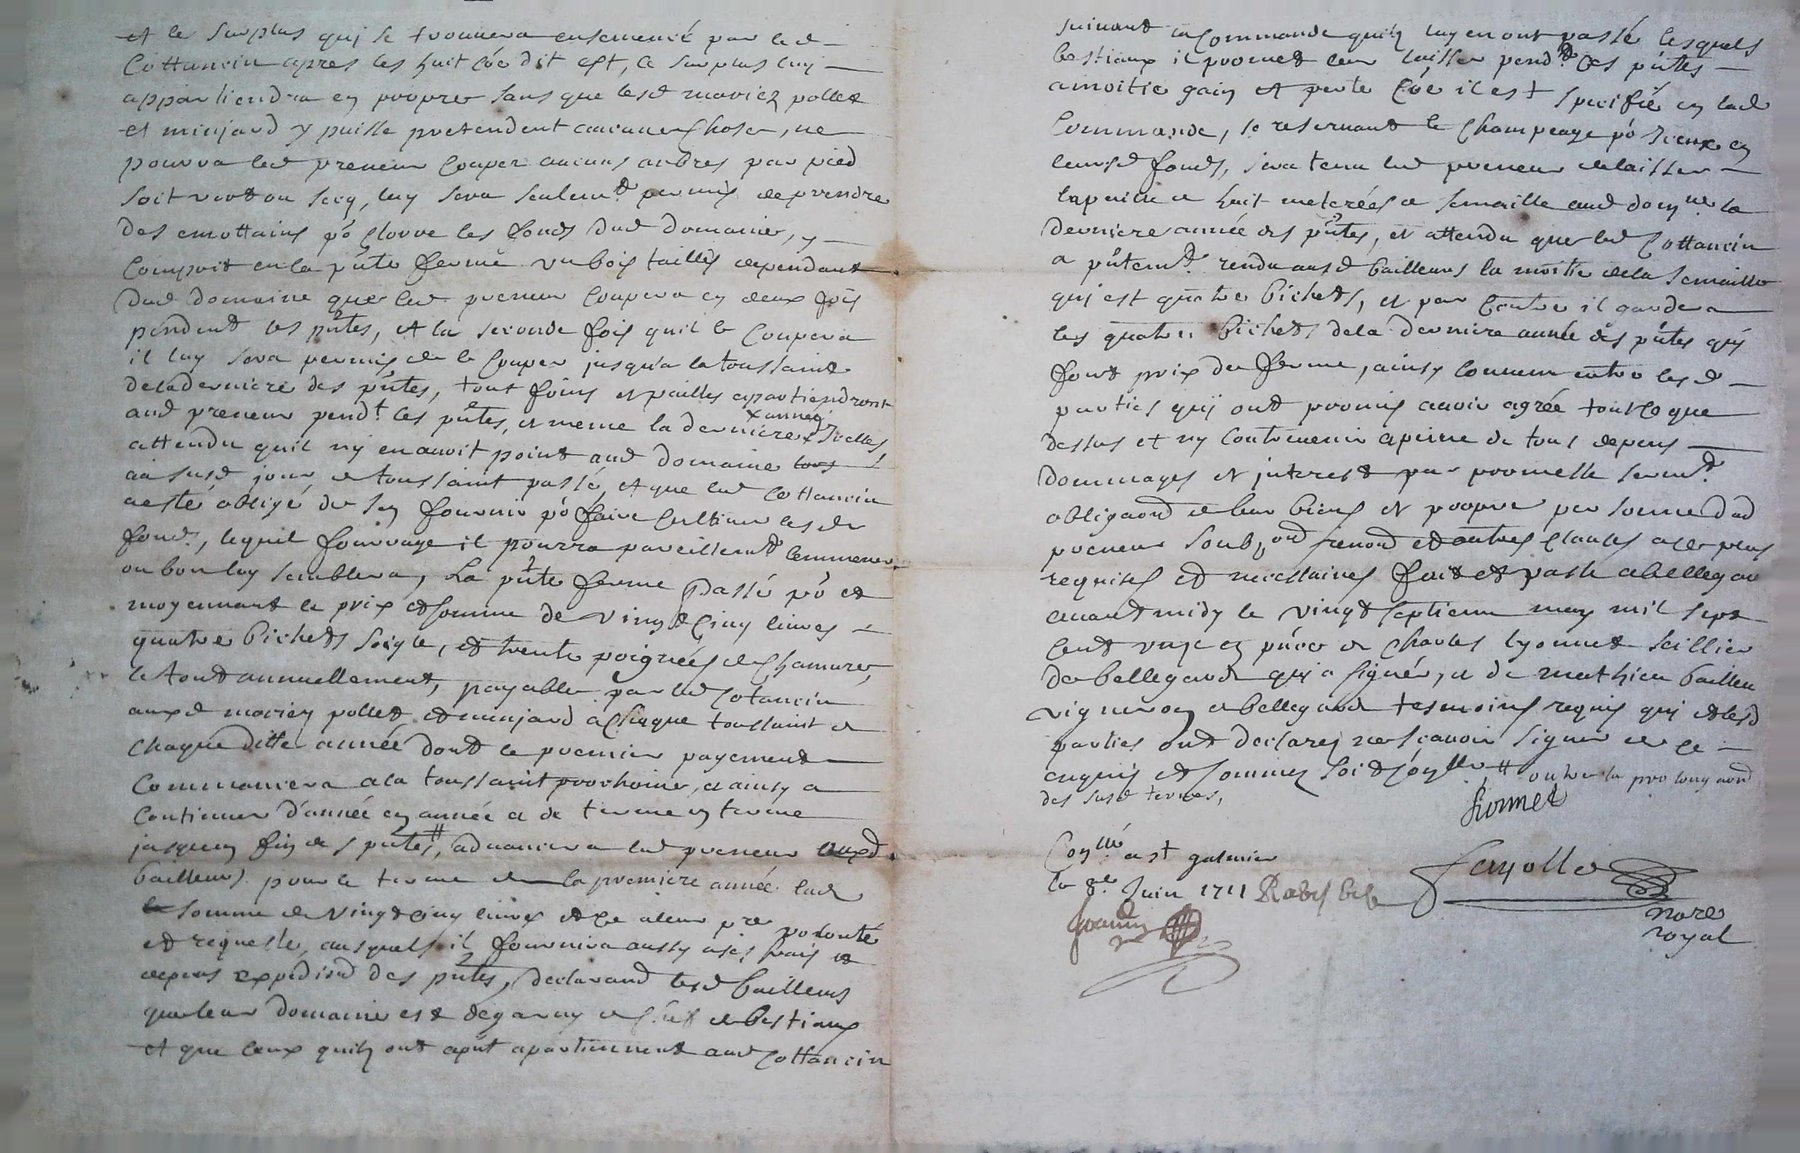 et le surplus quj se trouuera ensemencé par led
Cottancin apres les huit coe dit est, le surplus luy
appartiendra en propre sans que lesd mariez pollet
et minjard y puisse pretendent aucune chose, ne
pourra led preneur couper aucuns arbres par pied
soit verd ou secq, luy sera seulemt permis de prendre
des emottains po clorre les fonds dud domaine,
compris en la pnte ferme un bois taillis dependant
dud domaine que led preneur coupera en deux fois
pendent les pntes, et la seconde fois quil le coupera
il luy sera permis de le couper jusqua la toussaint
de la derniere des pntes, tout foins et pailles appartiendront
aud preneur pendt les pntes, et meme la derniere année Icelles
attendu quil ny en avoit point aud domaine
au susd jour de toussaint passé, et que led Cottancin
a esté obligé de sen fournir po faire cultiver lesd
fonds, lequel fourrage il pourra pareillemt emmener
ou bon luy semblera, La pnte ferme passé po et
moyennant le prix et somme de vingt cinq livres
quatre bichets seigle, et trente poignées de chanure,
le tout annuellement, payable par led Cotancin
auxd mariez pollet et minjard a chaque toussaint de
chaque ditte année dont le premier payement
commancera a la toussaint prochaine, et ainsy a
continuer d'année en année et de terme en terme
jusques fin des pntes, aduancera led preneur auxd
bailleurs pour le terme de la premiere année lad
somme de vingt cinq livres et ce a leur pre volonté
et requeste, ausquels il fournira aussy a ses frais et
depens expedion des pntes, declarant lesd bailleurs
que leur domaine est degarny de bestiaux
et que ceux quilz ont apnt apartiennent aud Cottancin
suivant la commande quilz luy en ont passé lesquels
bestiaux il promet leur laisser pendt les pntes
a moitie gain et perte coe il est specifié en lad
commande, se reservant le champeage po Iceux en
leursd fonds, sera tenu led preneur de laisser
la paille de huit meterées de semaille aud domne la
derniere année des pntes, et attendu que led Cottancin
a pntemt rendu ausd bailleurs la moitie de la semaille
quj est quatre bichets, et par contre il gardera
les quatre bichets de la derniere année des pntes quj
font prix de ferme, ainsy convenu entre lesd
parties quj ont promis avoir agrée tout ce que
dessus et ny contrevenir a peine de tous depens
dommages et jnterest par promesse sermt
obligaon de leur biens et propre personne dud
preneur soubjon renon et autres clauses a ce plus
requises et necessaires fait et passé a bellegarde
avant midy le vingt septieme may mil sept
cent unze en pnce de Charles lyonnet sellier
de bellegarde quj a signé, et de mathieu baillen
vigneron de bellegarde tesmoins requis quj et lesd
parties ont declarez ne scavoir signer de ce
enquis et sommez soit et outre la prolongaon
des susd termes,
Lionnet
Conllé a st galmier
le 8e Juin 1711
Fayolle
nore
royal